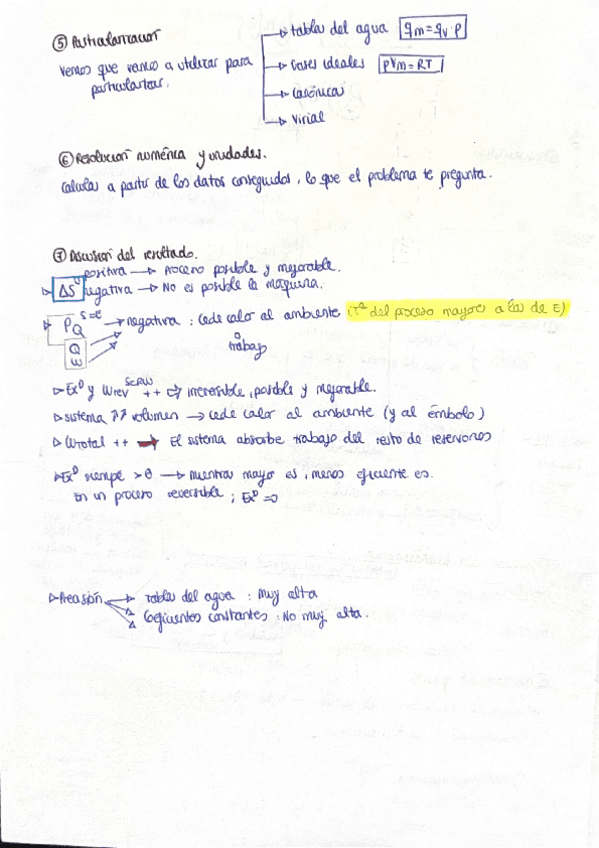 ⑤ Particularización
Vemos que vamos a utilizar para particularizar.
→ tablas del agua qm = qv·ρ
→ Gases ideales PVm = RT
→ Canónica
→ Virial
⑥ Resolución numérica y unidades.
Calcular a partir de los datos conseguidos, lo que el problema te pregunta.
⑦ Discusión del resultado.
ΔS^U positiva → Proceso posible y mejorable.
negativa → No es posible la máquina.
P_Q^{s=e} → negativa : cede calor al ambiente (Tª del proceso mayores a las de E)
Q
W
o
trabajo
▷ Ex^D y Wrev ++ ⇒ irreversible, posible y mejorable.
▷ sistema ↗↗ volumen → cede calor al ambiente (y al émbolo)
▷ Wtotal ++ → El sistema absorbe trabajo del resto de reservorios
▷ Ex^D siempre > 0 → mientras mayor es, menos eficiente es.
En un proceso reversible ; Ex^D = 0
▷ Precisión → tablas del agua : Muy alta
Coeficientes constantes : No muy alta.